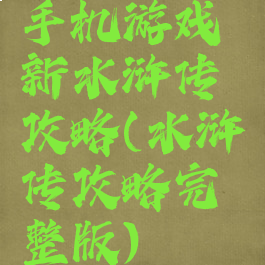 手机游戏
新水浒传
攻略(水浒
传攻略完
整版)